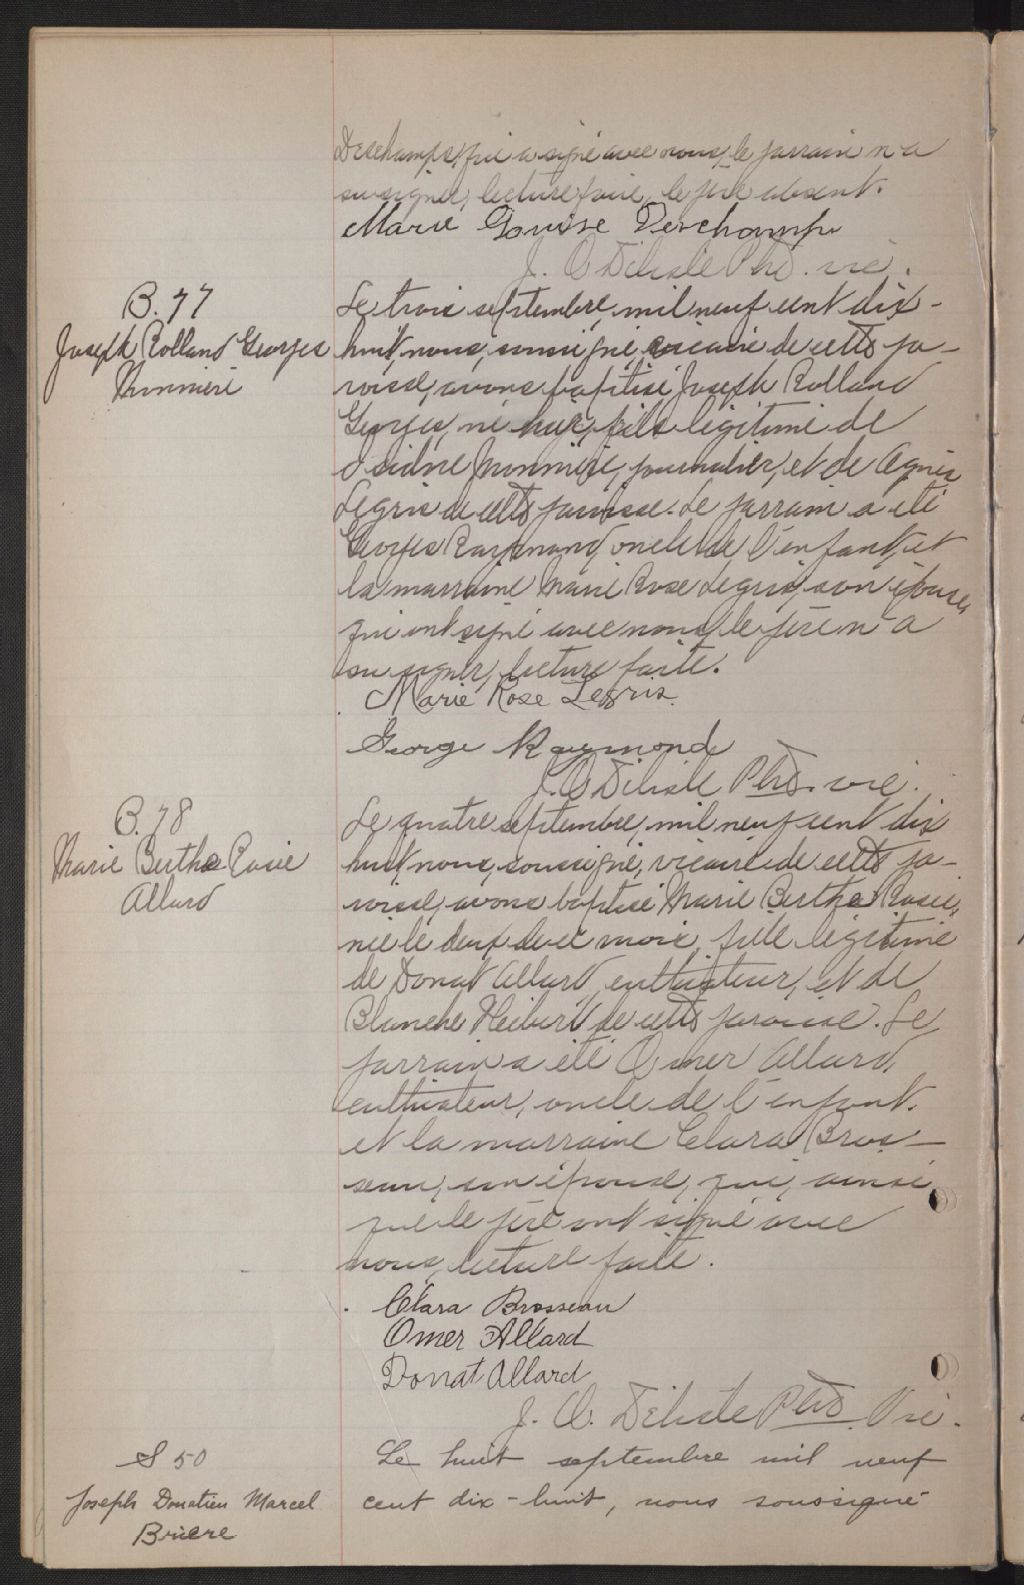 Deschamps, qui a signé avec nous, le parrain n'a
su signer, lecture faite, le père absent.
Marie Louise Deschamps
J. O Delisle Ptre. vic.
B. 77
Joseph Rolland Georges
Monmieré
Le trois septembre, mil neuf cent dix-
huit, nous, soussigné, vicaire de cette pa-
roisse, avons baptisé Joseph Rolland
Georges, né hier, fils légitime de
Isidore journalier, et de Agnes
Legris de cette paroisse. Le parrain a été
Georges Raymond, oncle de l'enfant, et
la marraine Marie Rose Legris, son épouse,
qui ont signé avec nous, le père n'a
su signer, lecture faite.
Marie Rose Legris.
George Raymond
J. O Delisle Ptre. vic.
B. 78
Marie Bertha Rosie
Allard
Le quatre septembre, mil neuf cent dix
huit, nous, soussigné, vicaire de cette pa-
roisse, avons baptisé Marie Bertha Rosie,
née le deux de ce mois, fille légitime
de Donat Allard, cultivateur, et de
Blanche Hebert de cette paroisse. Le
parrain a été Omer Allard,
cultivateur, oncle de l'enfant.
et la marraine Clara Bros-
seau, son épouse, qui, ainsi
que le père ont signé avec
nous, lecture faite.
Clara Brosseau
Omer Allard
Donat Allard
J. O. Delisle Ptre Vic.
S 50
Joseph Donatien Marcel
Briere
Le huit septembre mil neuf
cent dix-huit, nous soussigné